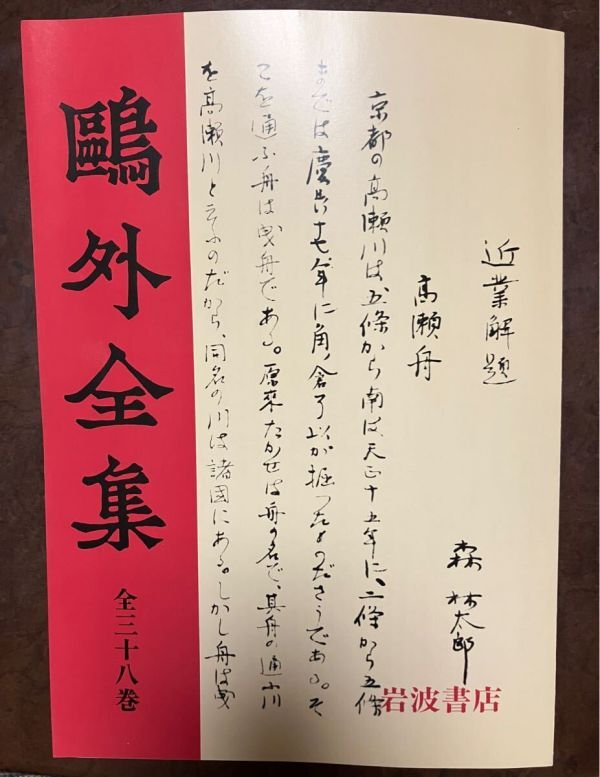 近業解題
高瀬舟
森林太郎
京都の高瀬川は五條から南は天正十五年に、二條から五條
までは慶長十七年に角倉了以が掘つたものださうである。そ
こを通ふ舟は曳舟である。原來たかせは舟の名で、其舟の通ふ川
を高瀬川と云ふのだから、同名の川は諸國にある。しかし舟は曳
岩波書店
鷗外全集
全三十八巻